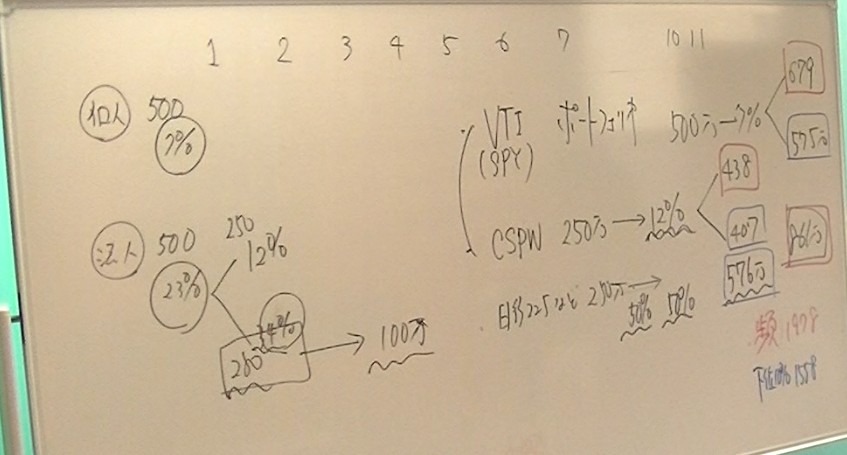 1 2 3 4 5 6 7 10 11
個人 500
7%
法人 500
23%
250
12%
34%
250
100万
VTI
(SPY)
ポートフォリオ
500万 7%
679
575万
CSPW 250万 12%
438
407
861万
日経225など 250万
50% 50%
576万
1978
下位10% 1558